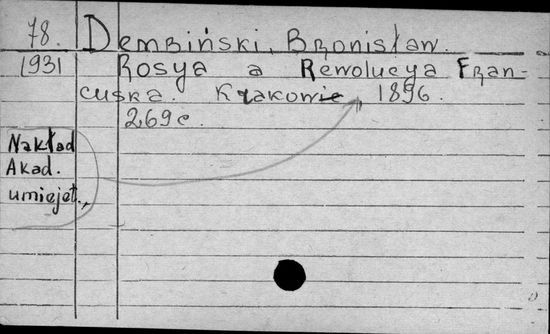 78. Dembiński, Bronisław.
1931 Rosya a Rewolucya Fran-
cuska. Krakowie, 1896.
269c.
Nakład
Akad.
umiejęt.,